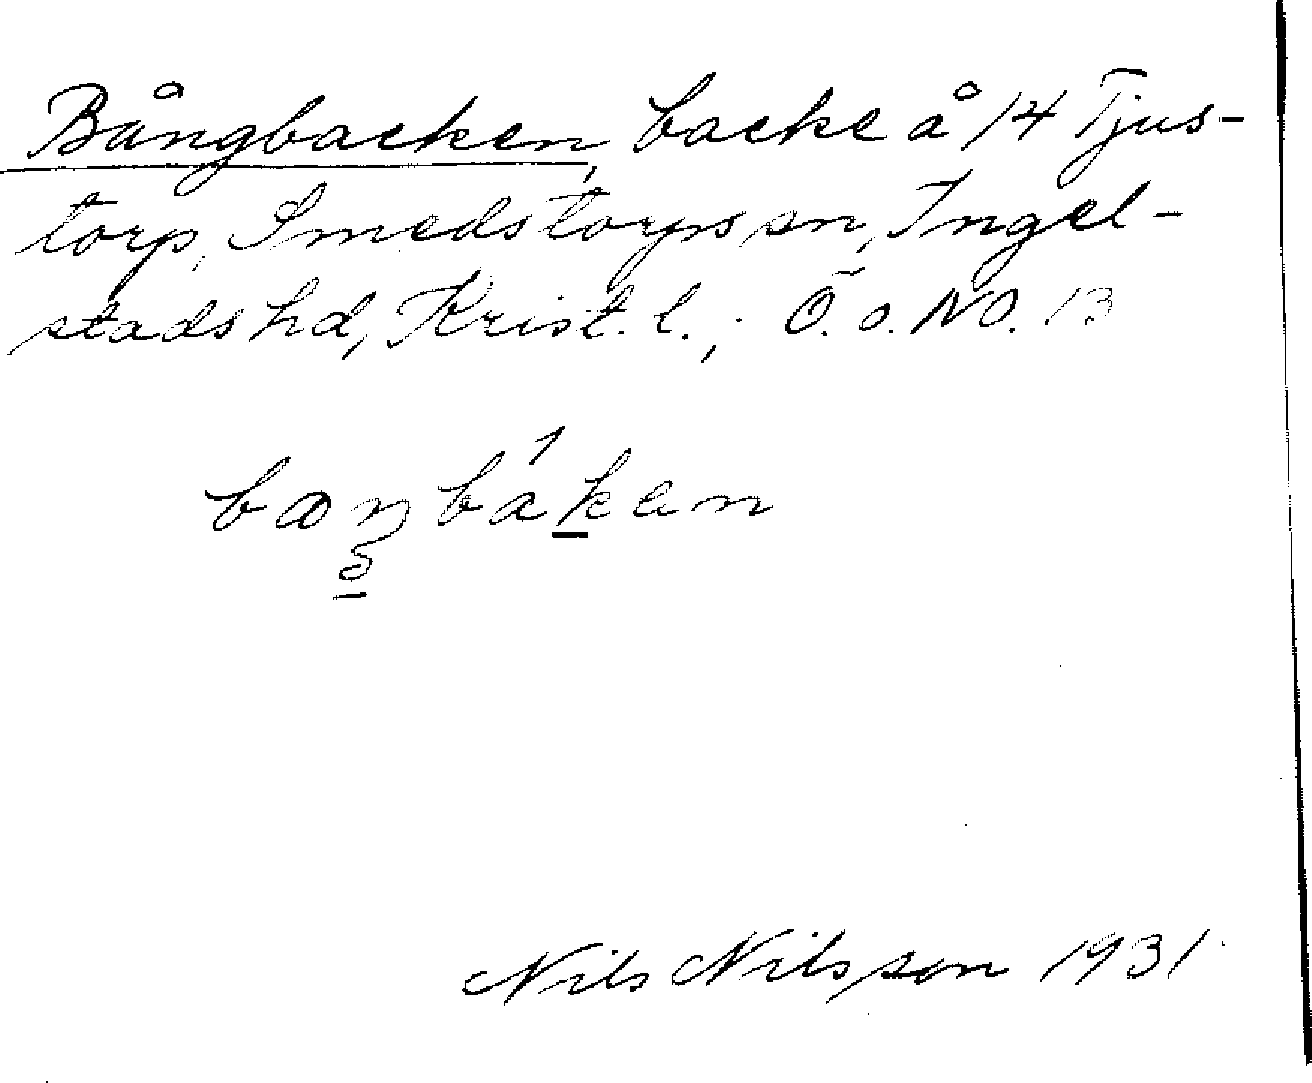 Bångbacken, backe å 14 Tjus-
torp, Smedstorps sn, Ingel-
stads hd, Krist. l., Ö. o. NO. 13
Nils Nilsson 1931